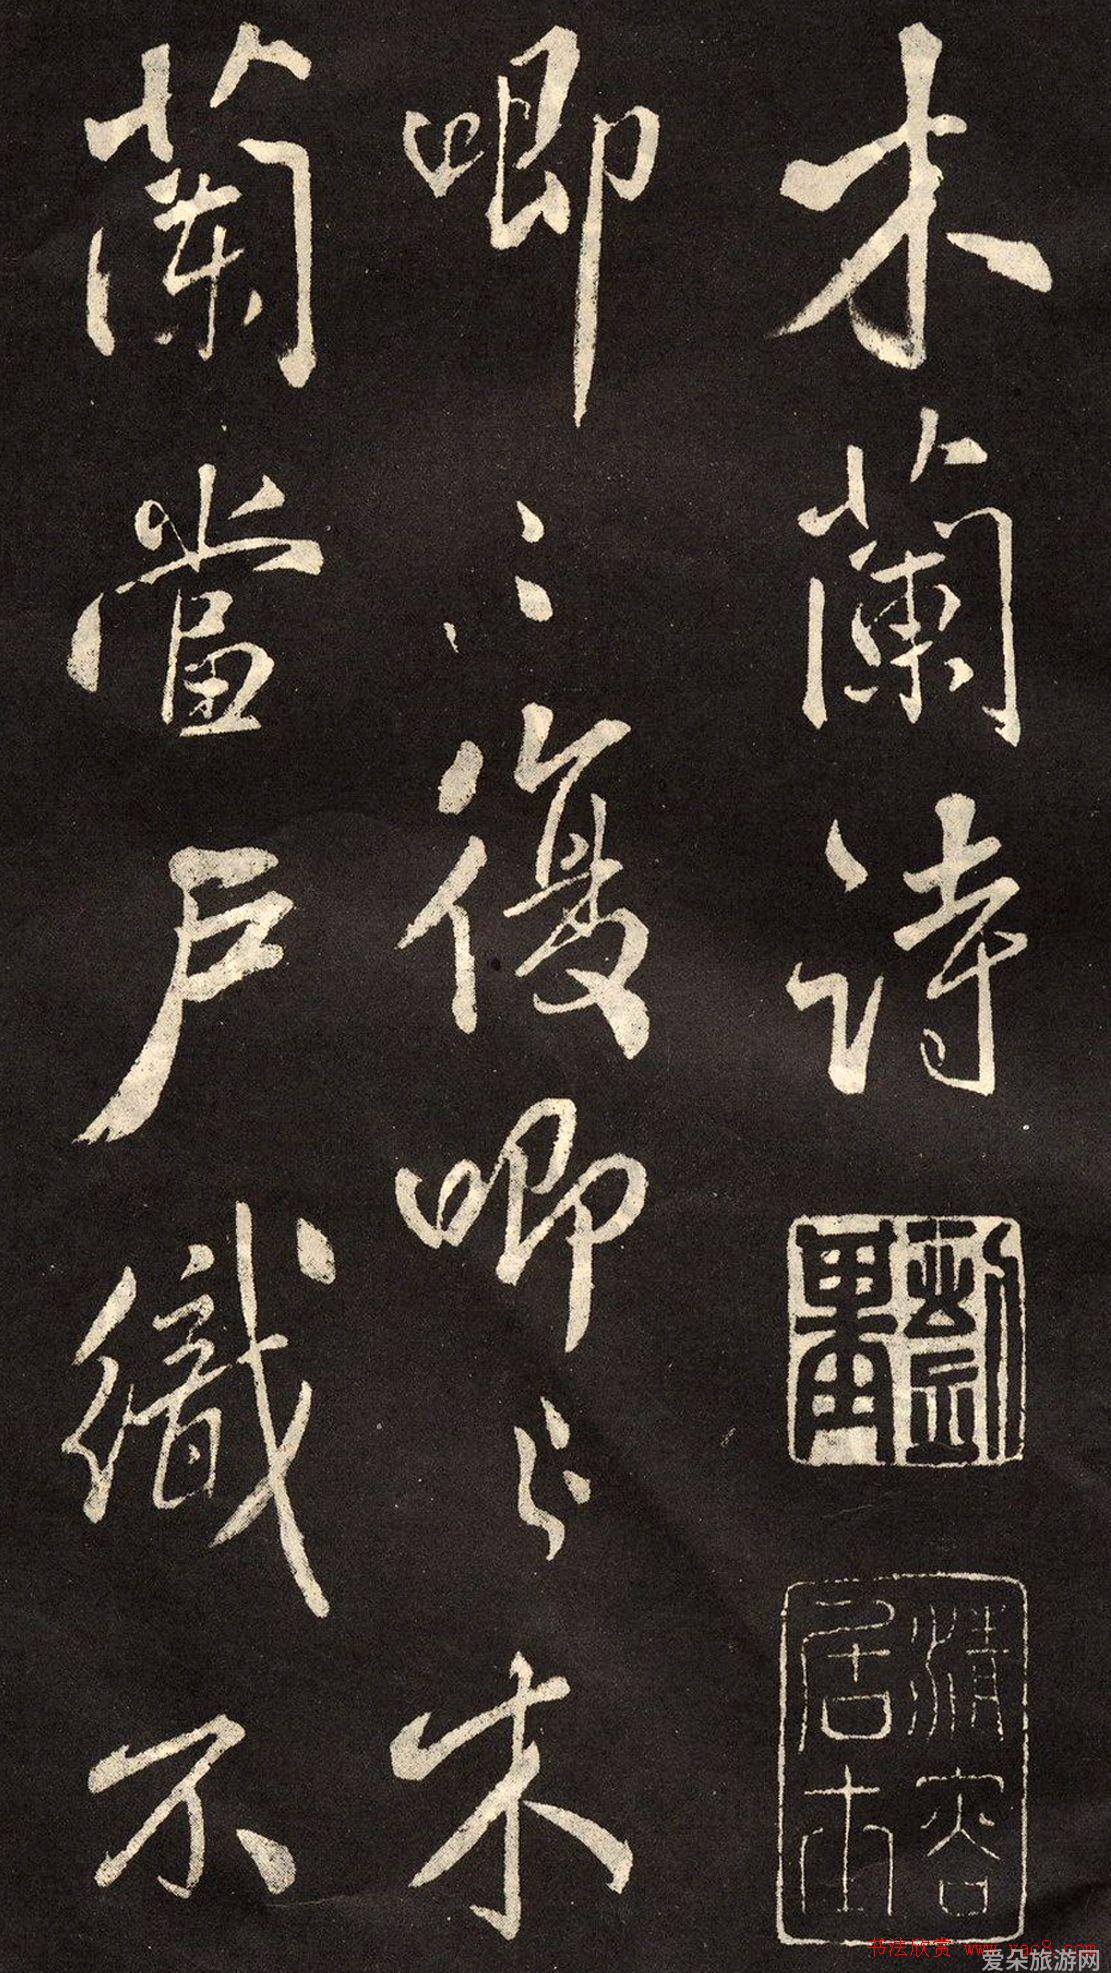 木蘭詩
清容居
唧〻復唧〻木
蘭當戶織不
书法欣赏 www.yac8.com
爱朵旅游网